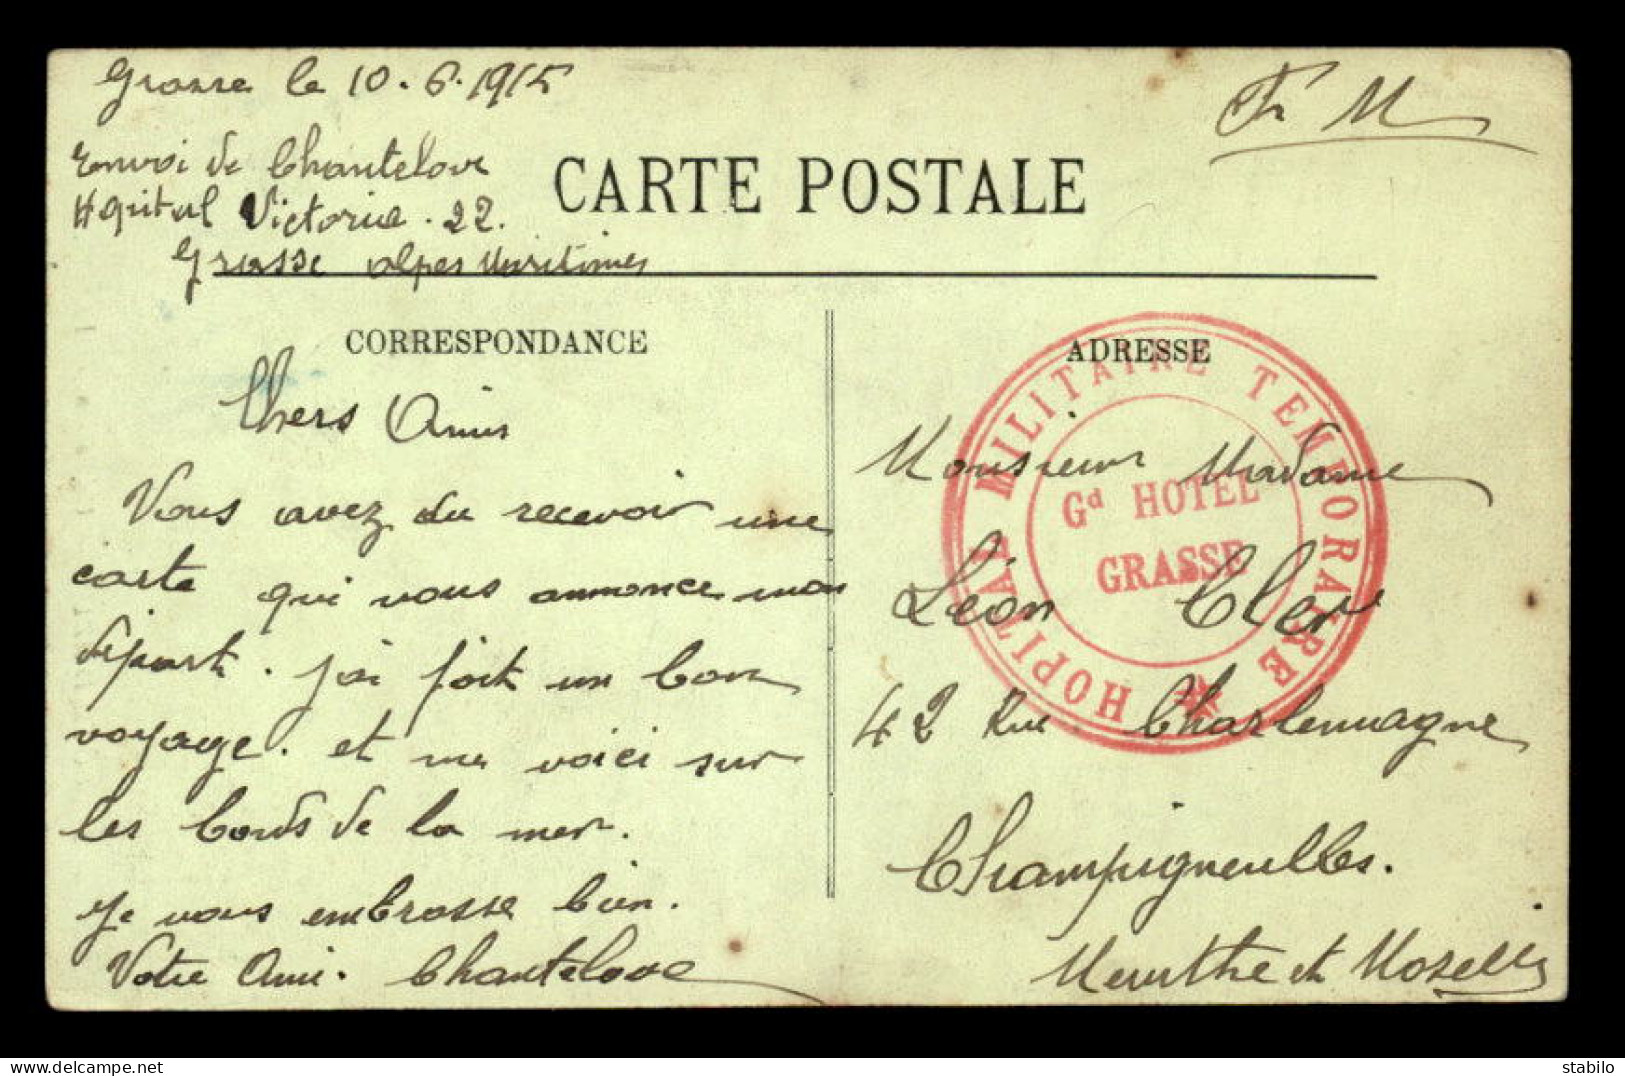 Grasse le 10.6.1915
Fr M
Envoi de Chantelove
Hopital Victoria. 22.
Grasse alpes Maritimes
CARTE POSTALE
CORRESPONDANCE
Chers Amis
Vous avez du recevoir une
carte qui vous annonce mon
départ. j'ai fait un bon
voyage. et me voici sur
les bords de la mer.
Je vous embrasse bien.
Votre Ami. Chantelove
ADRESSE
HOPITAL MILITAIRE TEMPORAIRE
Gd HOTEL
GRASSE
Monsieur Madame
Léon Cler
42 Rue Charlemagne
Champigneulles.
Meurthe et Moselle
stabilo